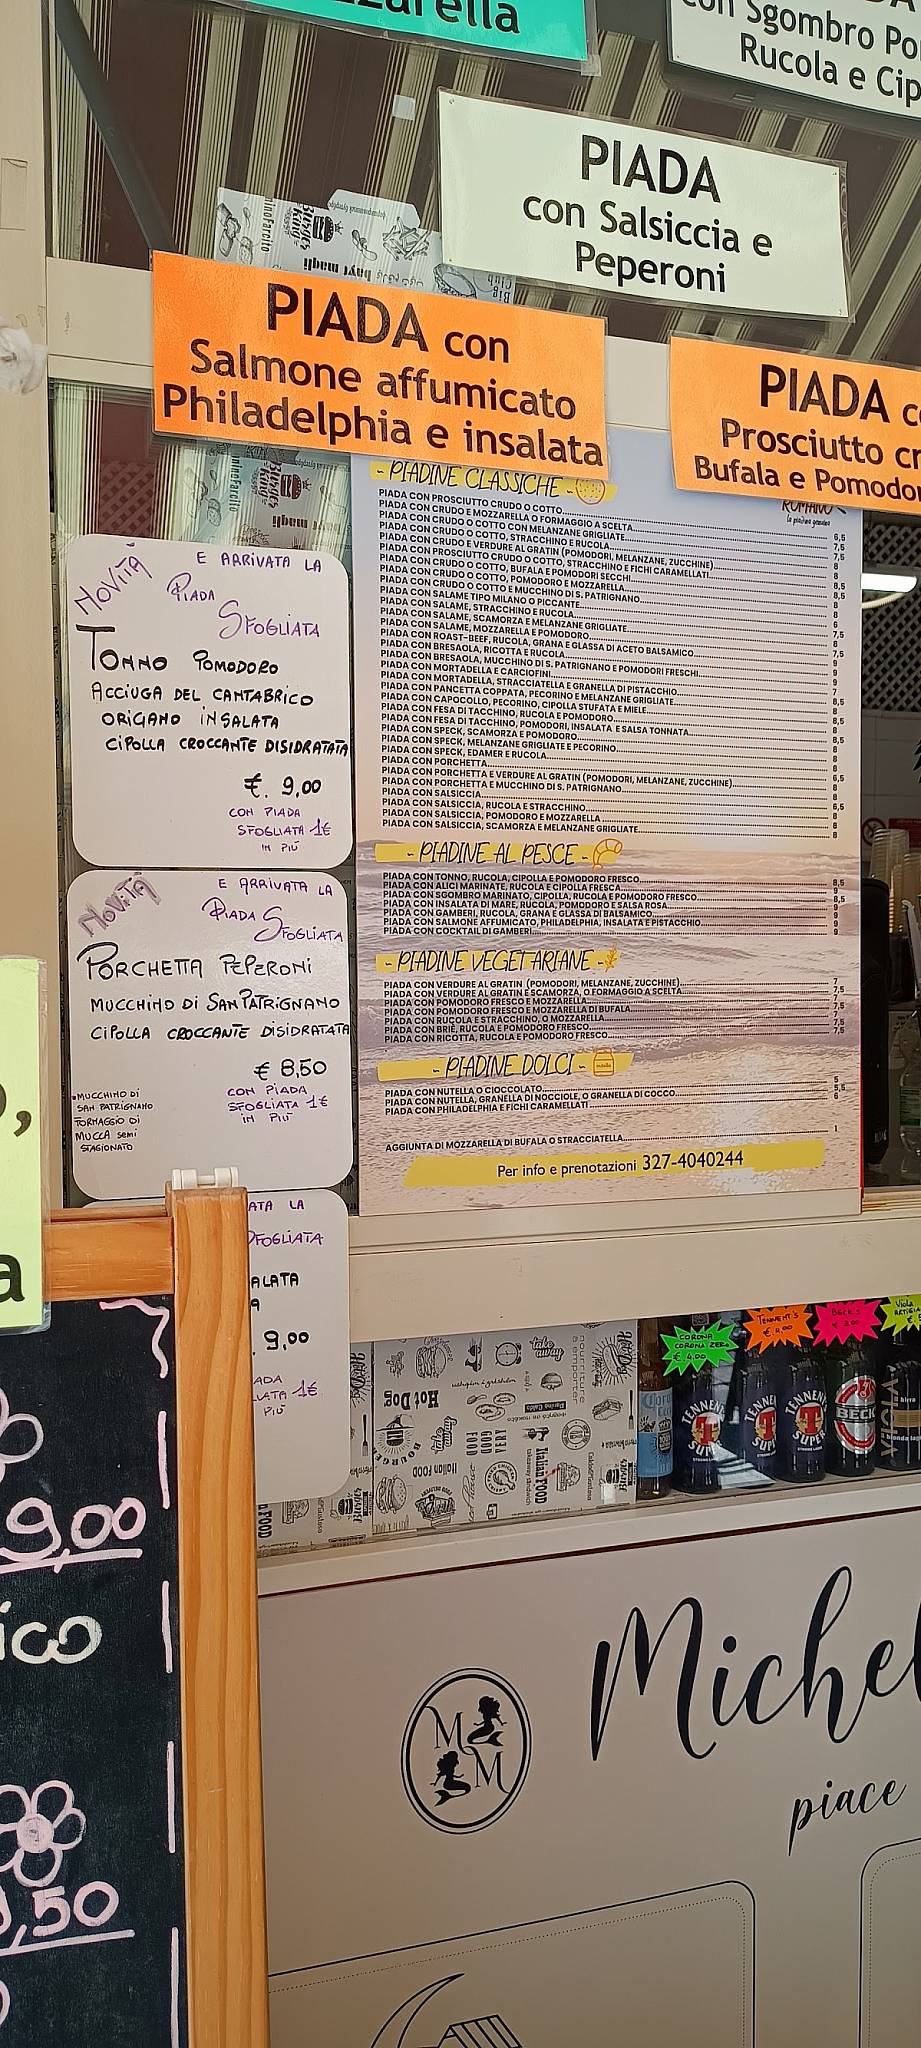 zzarella
con Sgombro Po
Rucola e Cip
PIADA
con Salsiccia e
Peperoni
PIADA con
Salmone affumicato
Philadelphia e insalata
PIADA c
Prosciutto cr
Bufala e Pomodo
NOVITÀ
E ARRIVATA LA
PIADA
SFOGLIATA
TONNO POMODORO
ACCIUGA DEL CANTABRICO
ORIGANO INSALATA
CIPOLLA CROCCANTE DISIDRATATA
€. 9,00
CON PIADA
SFOGLIATA 1€
IN PIÙ
NOVITÀ
E ARRIVATA LA
PIADA SFOGLIATA
PORCHETTA PEPERONI
MUCCHINO DI SAN PATRIGNANO
CIPOLLA CROCCANTE DISIDRATATA
€ 8,50
CON PIADA
SFOGLIATA 1€
IN PIÙ
• MUCCHINO DI
SAN PATRIGNANO
FORMAGGIO DI
MUCCA SEMI
STAGIONATO
ATA LA
SFOGLIATA
ALATA
9,00
IADA
LIATA 1€
PIÙ
- PIADINE CLASSICHE -
ROMANO
la piadina genuina
PIADA CON PROSCIUTTO CRUDO O COTTO
PIADA CON CRUDO E MOZZARELLA O FORMAGGIO A SCELTA
PIADA CON CRUDO O COTTO CON MELANZANE GRIGLIATE
PIADA CON CRUDO O COTTO, STRACCHINO E RUCOLA
PIADA CON CRUDO E VERDURE AL GRATIN (POMODORI, MELANZANE, ZUCCHINE)
PIADA CON PROSCIUTTO CRUDO O COTTO, STRACCHINO E FICHI CARAMELLATI
PIADA CON CRUDO O COTTO, BUFALA E POMODORI SECCHI
PIADA CON CRUDO O COTTO, POMODORO E MOZZARELLA
PIADA CON CRUDO O COTTO E MUCCHINO DI S. PATRIGNANO
PIADA CON SALAME TIPO MILANO O PICCANTE
PIADA CON SALAME, STRACCHINO E RUCOLA
PIADA CON SALAME, SCAMORZA E MELANZANE GRIGLIATE
PIADA CON SALAME, MOZZARELLA E POMODORO
PIADA CON ROAST-BEEF, RUCOLA, GRANA E GLASSA DI ACETO BALSAMICO
PIADA CON BRESAOLA, RICOTTA E RUCOLA
PIADA CON BRESAOLA, MUCCHINO DI S. PATRIGNANO E POMODORI FRESCHI
PIADA CON MORTADELLA E CARCIOFINI
PIADA CON MORTADELLA, STRACCIATELLA E GRANELLA DI PISTACCHIO
PIADA CON PANCETTA COPPATA, PECORINO E MELANZANE GRIGLIATE
PIADA CON CAPOCOLLO, PECORINO, CIPOLLA STUFATA E MIELE
PIADA CON FESA DI TACCHINO, RUCOLA E POMODORO
PIADA CON FESA DI TACCHINO, POMODORI, INSALATA E SALSA TONNATA
PIADA CON SPECK, SCAMORZA E POMODORO
PIADA CON SPECK, MELANZANE GRIGLIATE E PECORINO
PIADA CON SPECK, EDAMER E RUCOLA
PIADA CON PORCHETTA
PIADA CON PORCHETTA E VERDURE AL GRATIN (POMODORI, MELANZANE, ZUCCHINE)
PIADA CON PORCHETTA E MUCCHINO DI S. PATRIGNANO
PIADA CON SALSICCIA
PIADA CON SALSICCIA, RUCOLA E STRACCHINO
PIADA CON SALSICCIA, POMODORO E MOZZARELLA
PIADA CON SALSICCIA, SCAMORZA E MELANZANE GRIGLIATE
- PIADINE AL PESCE -
PIADA CON TONNO, RUCOLA, CIPOLLA E POMODORO FRESCO
PIADA CON ALICI MARINATE, RUCOLA E CIPOLLA FRESCA
PIADA CON SGOMBRO MARINATO, CIPOLLA, RUCOLA E POMODORO FRESCO
PIADA CON INSALATA DI MARE, RUCOLA, POMODORO E SALSA ROSA
PIADA CON GAMBERI, RUCOLA, GRANA E GLASSA DI BALSAMICO
PIADA CON SALMONE AFFUMICATO, PHILADELPHIA, INSALATA E PISTACCHIO
PIADA CON COCKTAIL DI GAMBERI
- PIADINE VEGETARIANE -
PIADA CON VERDURE AL GRATIN (POMODORI, MELANZANE, ZUCCHINE)
PIADA CON VERDURE AL GRATIN E SCAMORZA, O FORMAGGIO A SCELTA
PIADA CON POMODORO FRESCO E MOZZARELLA
PIADA CON POMODORO FRESCO E MOZZARELLA DI BUFALA
PIADA CON RUCOLA E STRACCHINO, O MOZZARELLA
PIADA CON BRIÈ, RUCOLA E POMODORO FRESCO
PIADA CON RICOTTA, RUCOLA E POMODORO FRESCO
- PIADINE DOLCI -
PIADA CON NUTELLA O CIOCCOLATO 5
PIADA CON NUTELLA, GRANELLA DI NOCCIOLE, O GRANELLA DI COCCO 5,5
PIADA CON PHILADELPHIA E FICHI CARAMELLATI 6
AGGIUNTA DI MOZZARELLA DI BUFALA O STRACCIATELLA 1
Per info e prenotazioni 327-4040244
CORONA
CORONA ZERO
€ 4,00
TENNENT'S
€ 4,00
BECK'S
€ 3,00
Viola
TENNENT'S
SUPER
TENNENT'S
SUPER
BECK
VIOLA
birra
bionda
take
away
Hot Dog
BURGER
VERY
GOOD
FOOD
Italian FOOD
Italian
FOOD
a
9,00
ico
,50
M
M
Michel
piace